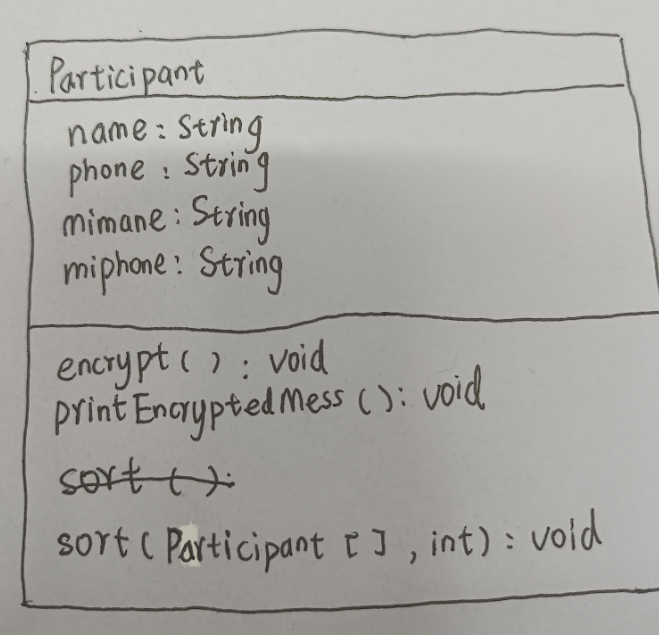 Participant
name: String
phone: String
mimane: String
miphone: String
encrypt(): void
printEncryptedMess(): void
sort():
sort(Participant[], int): void